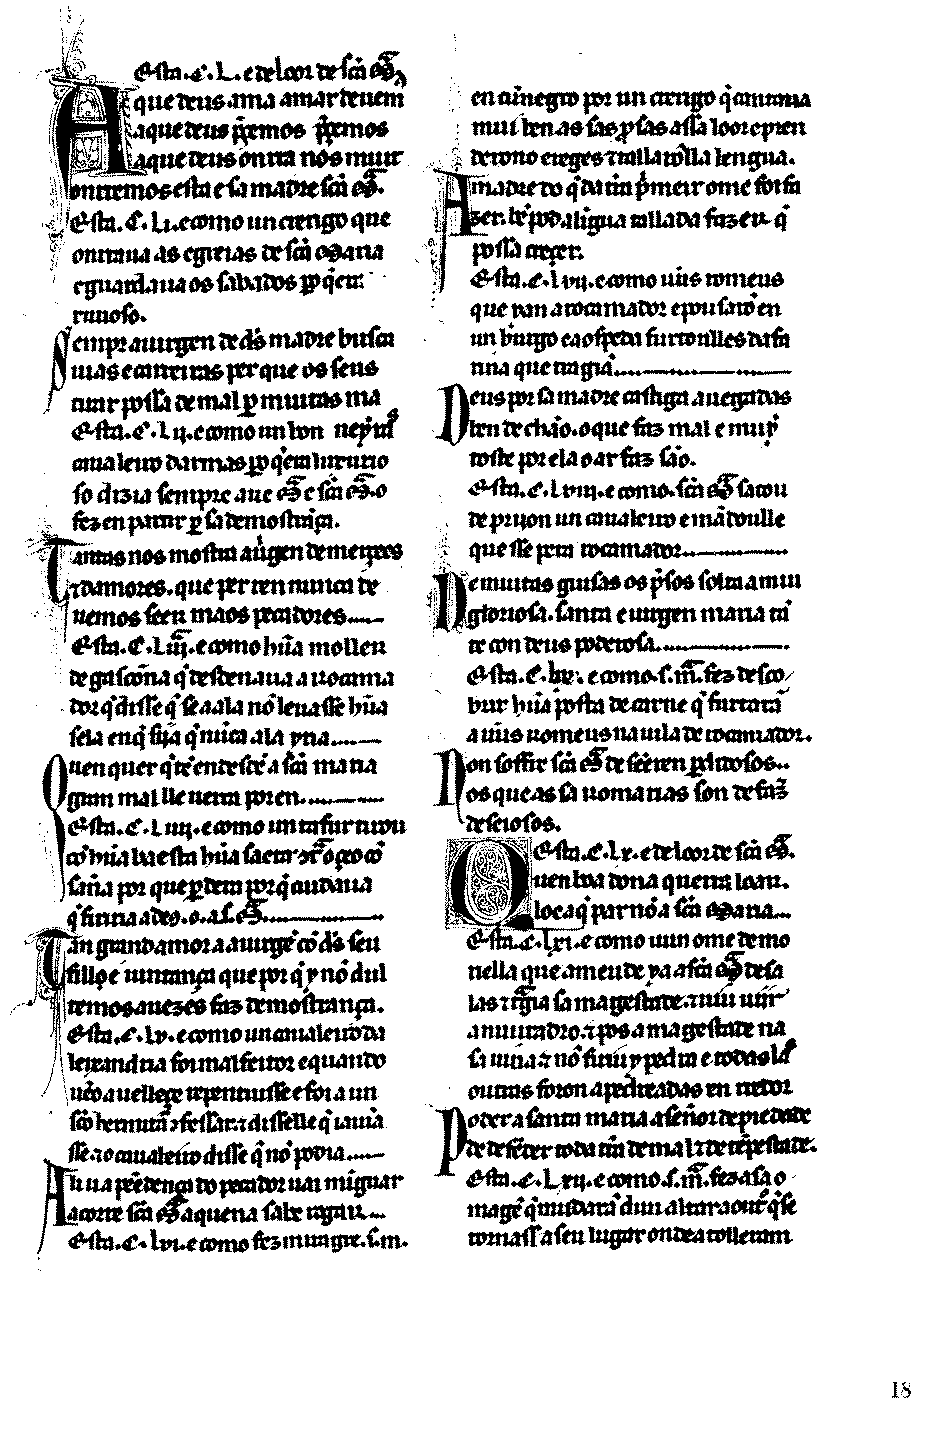 Esta .C. L. e de loor de sc̃a M̃a
A que deus ama amar deuem
a que deus p̃çemos p̃çemos
a que deus onrra nos muit
onrremos esta e sa madre sc̃a M̃.
Esta .C. L.i. e como un crerigo que
onrraua as egreias de sc̃a Maria
e guardaua os sabados p̃o q̃ era
runoso.
Sempr a uirgen de d̃s madre busca
uias e carreiras per que os seus
tirar possa de mal ꝑ muitas ma
Esta .C. L.ij. e como un bon
caualeiro darmas p̃o q̃ era luxurio
so dizia sempre aue M̃ e sc̃a M̃. o
fez en partir ꝑ sa demostrãça.
Tantas nos mostra a uirgen de merçees
e damores. que per ren nunca de
uemos seer maos pecadores
Esta .C. Liij. e como hũa moller
de gascoña q̃ desdenaua a rocama
dor q̃ disse q̃ se a ala nõ leuasse hũa
sela en q̃ sija q̃ nũca ala yria
Quen quer q̃ en desdẽ a sc̃a maria
gran mal lle uerra poren.
Esta .C. Liiij. e como un tafur tirou
cõ hũa baesta hũa saeta ↄ̃tᵃ o çeo cõ
saña por que ꝑdera por q̃ cuidaua
q̃ firiria a deo. o. a. s. M̃
Tan grand amor a a uirgẽ cõ d̃s seu
fillo e iuntança que por q̃ y nõ dul
temos a uezes faz demostrança.
Esta .C. Lv. e como un caualeiro da
lexandria foi malfeitor e quando
uẽo a uelleçe repentiusse e foi a un
sc̃o hermitã ↄfessar. ⁊ disselle q̃ iauũa
sse. ⁊ o caualeiro disse q̃ nõ podia
A uua pẽedença do pecador uai miguar
a corte sc̃a M̃ a quen a sabe rogar
Esta .C. Lvi. e como fez un angre. s. m.
en ũ negro por un crerigo q̃ cantaua
mui ben as sas ꝓsas a ssa loor e pren
derono ereges ⁊ talla rõlla lengua.
A madre do q̃ da trã p̃meir ome foi fa
zer. bẽ pod a ligua tallada fazer. q̃
possa creçer.
Esta .C. Lvij. e como ũus romeus
que yan a rocamador e pousarõ en
un burgo e a ospeda furtoulles da fa
riña que tragiã
Deus por sa madre castiga a uegadas
ben de chão. o que faz mal e mui ꝑ
toste por ela o ar faz são.
Esta .C. Lviij. e como. sc̃a M̃ sacou
de prijon un caualeiro e mãdoulle
que sse fora rocamador
De muitas guisas os p̃sos solta a mui
gloriosa. santa e uirgen maria tã
te con deus poderosa.
Esta .C. Lix. e como. s. m̃. fez desco
brir hũa posta de carne q̃ furtara
a ũus romeus na uila de rocamador.
Non soffre sc̃a M̃ de seeren ꝑdidosos
os que as sa romarias son de faz̃
deseiosos.
Esta .C. Lx. e de loor de sc̃a M̃.
Quen bõa dona querra loar.
loe a q̃ par nõ a sc̃a Maria
Esta .C. Lxi. e como uun ome de mo
nella que ameude ya a sc̃a M̃ de sa
las ⁊ tragia sa magestade. ⁊ uiu uĩr
a nuuradro. ⁊ pos a magestade na
sa uiña ⁊ nõ firiu y pedra e todas las
outras foron apedreadas en redor
Poder a santa maria a señor de piedade
de defẽder toda trã de mal ⁊ de tẽpestade.
Esta .C. Lxij. e como. s. m̃. fez a sa o
magẽ q̃ mudarã dun altar a outᵒ q̃ se
tornass a seu lugar onde a tolleram
18